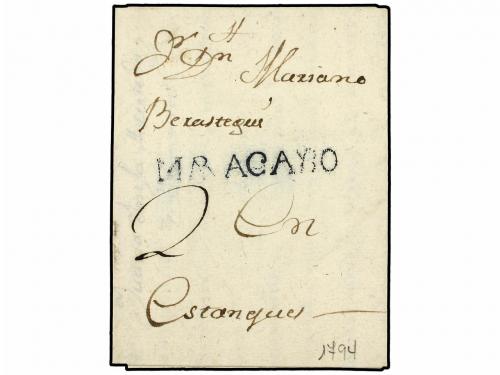 Sr Dn Mariano
Berastegui
MRACAYBO
2 En
Estanques
1794